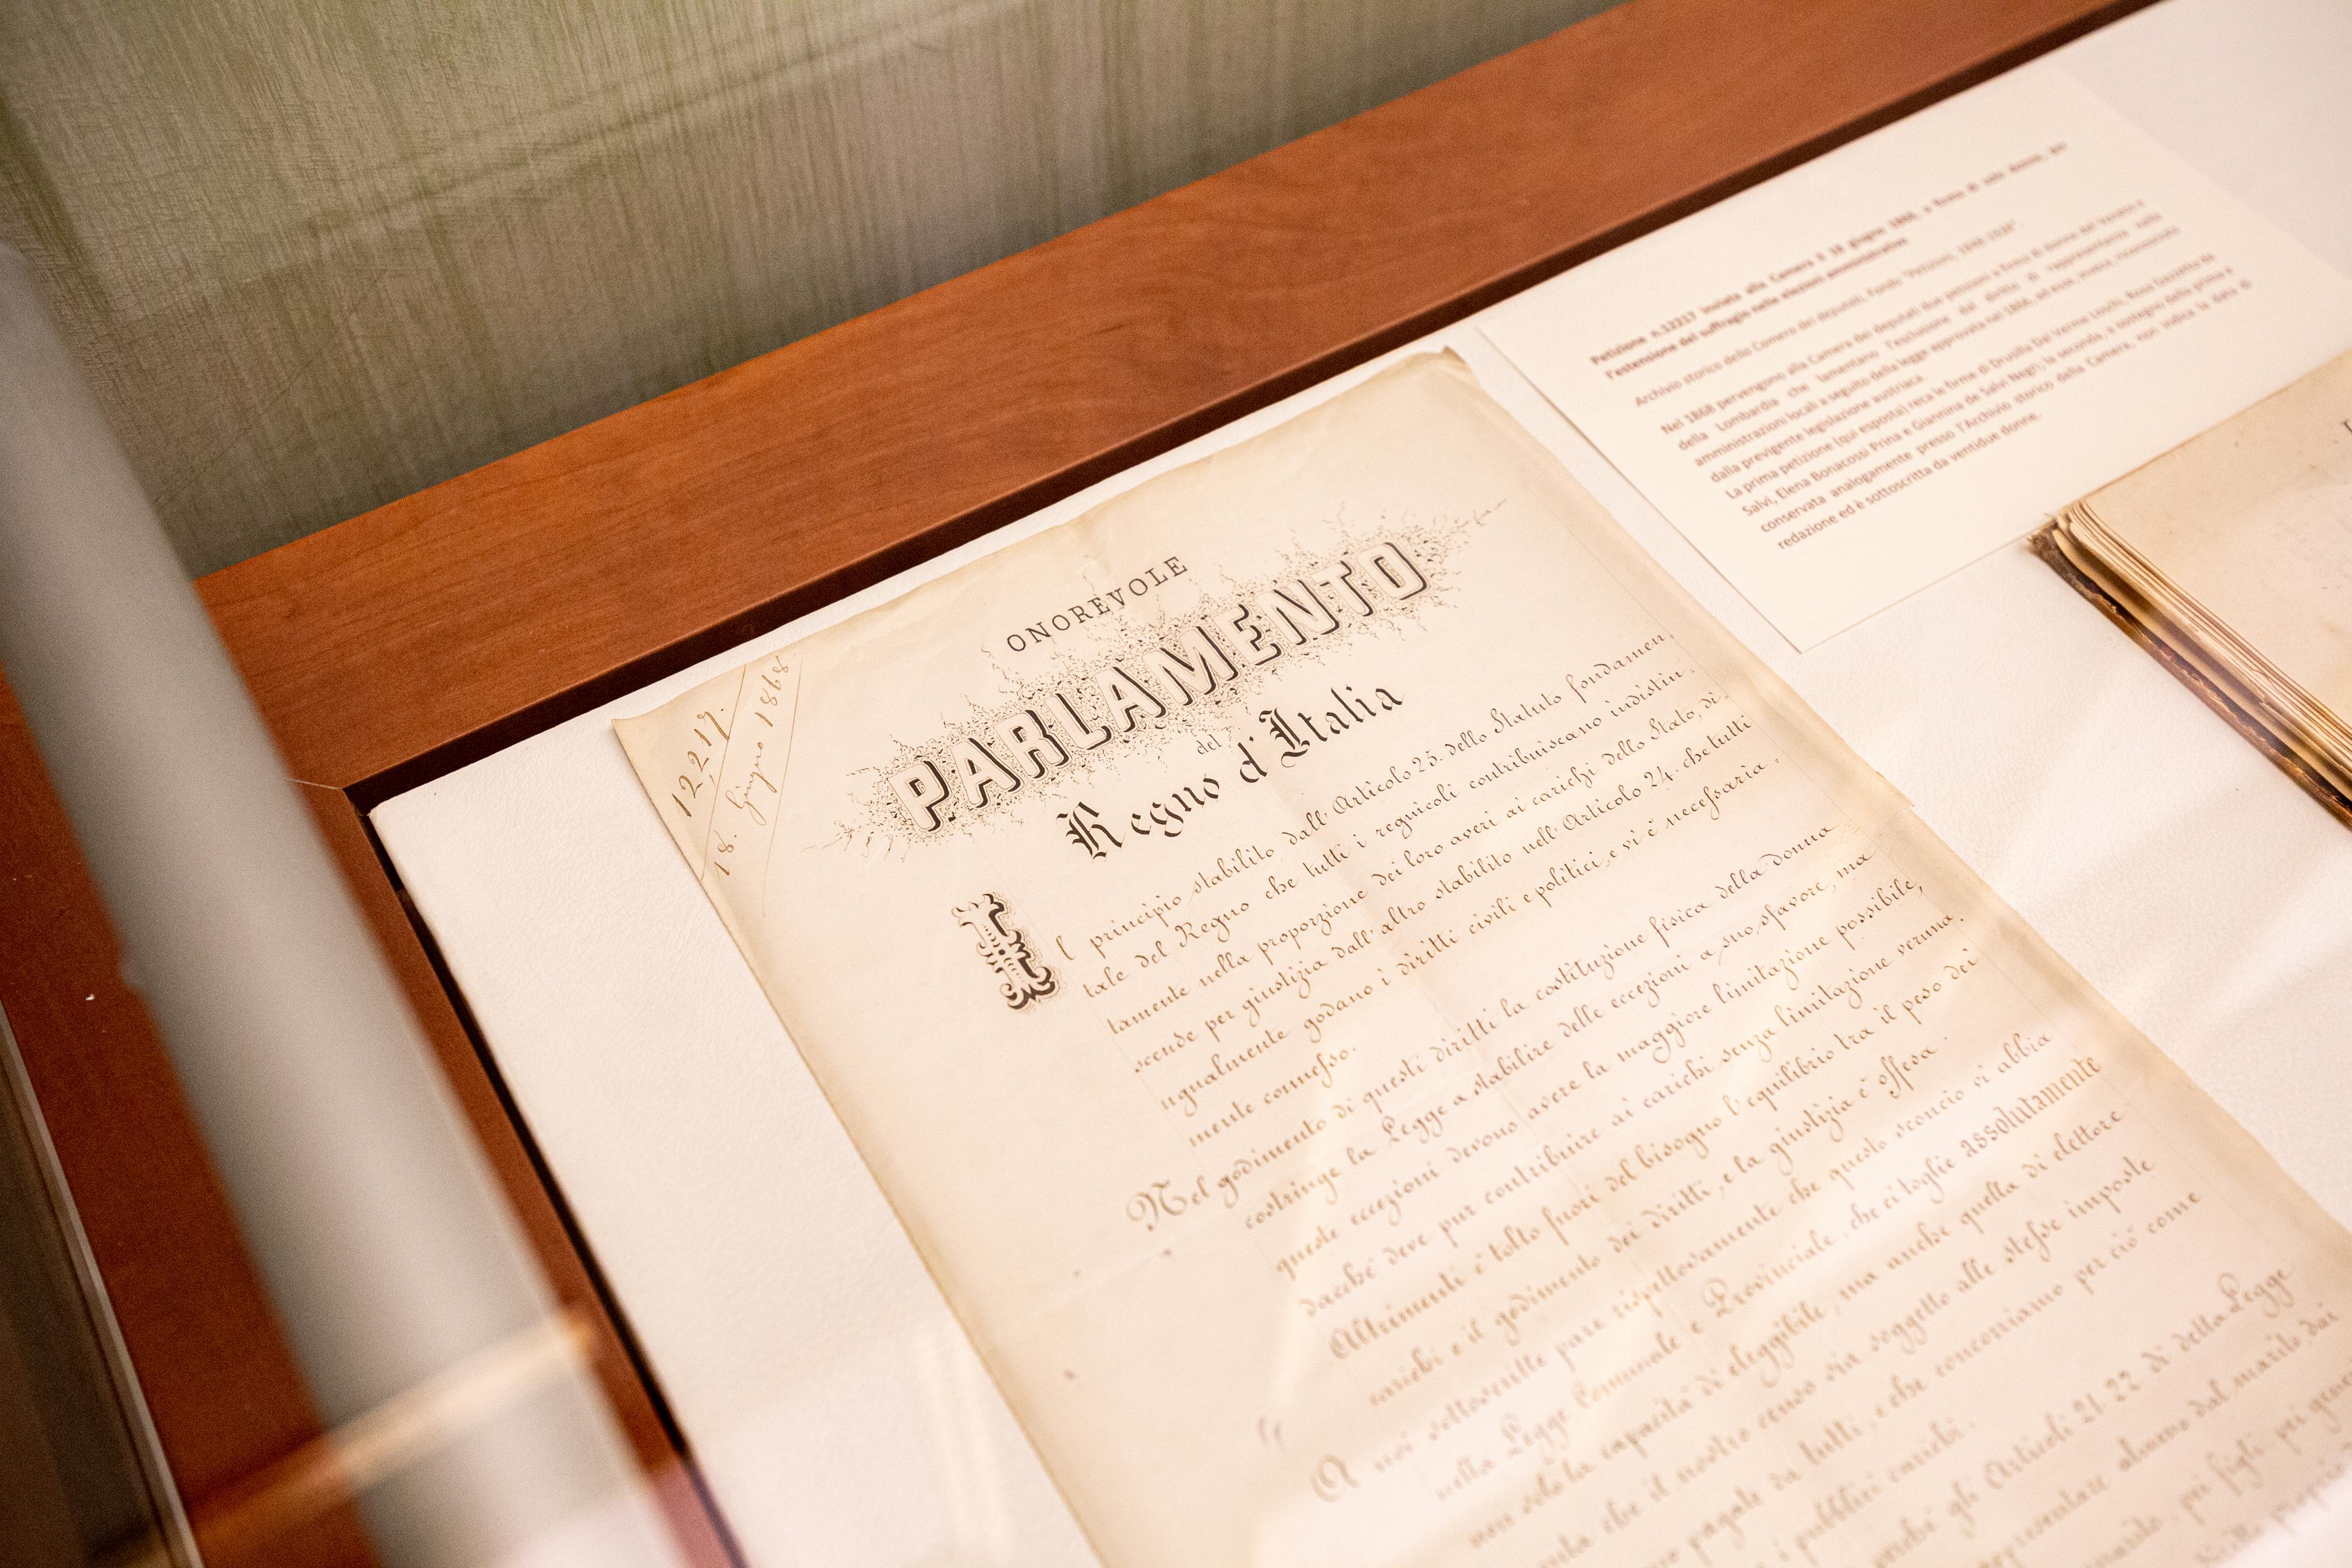 12,217.
18. Giugno 1868
ONOREVOLE
PARLAMENTO
del
Regno d'Italia
Il principio stabilito dall'Articolo 25. dello Statuto fondamen,
tale del Regno che tutti i regnicoli contribuiscano indistin,
tamente nella proporzione dei loro averi ai carichi dello Stato, di,
scende per giustizia dall'altro stabilito nell'Articolo 24. che tutti
ugualmente godano i diritti civili e politici, e vi è necessaria,
mente connesso.
Nel godimento di questi diritti la costituzione fisica della donna
costringe la Legge a stabilire delle eccezioni a suo sfavore, ma
queste eccezioni devono avere la maggiore limitazione possibile,
dacché deve pur contribuire ai carichi senza limitazione veruna.
Altrimenti è tolto fuori del bisogno l'equilibrio tra il peso dei
carichi e il godimento dei diritti, e la giustizia è offesa.
A noi sottoscritte pare rispettosamente che questo sconcio vi abbia
nella Legge Comunale e Provinciale, che ci toglie assolutamente
non solo la capacità di eleggibile, ma anche quella di elettore
che il nostro censo sia soggetto alle stesse imposte
pagate da tutti, e che concorriamo per ciò come
i pubblici carichi.
perché gli Articoli 21-22 di detta Legge
rappresentare almeno dal marito dai
pei figli, pei
Petizione n.12217 inviata alla Camera il 18 giugno 1868, a firma di sole donne, per
l'estensione del suffragio nelle elezioni amministrative
Archivio storico della Camera dei deputati, Fondo "Petizioni, 1848-1938".
Nel 1868 pervengono alla Camera dei deputati due petizioni a firma di donne del Veneto e
della Lombardia che lamentano l'esclusione dal diritto di rappresentanza nelle
amministrazioni locali a seguito della legge approvata nel 1866, ad esse, invece, riconosciuto
dalla previgente legislazione austriaca.
La prima petizione (qui esposta) reca le firme di Drusilla Dal Verme Loschi, Rosa Gazzetta da
Salvi, Elena Bonacossi Prina e Giannina de Salvi Negri; la seconda, a sostegno della prima e
conservata analogamente presso l'Archivio storico della Camera, non indica la data di
redazione ed è sottoscritta da ventidue donne.